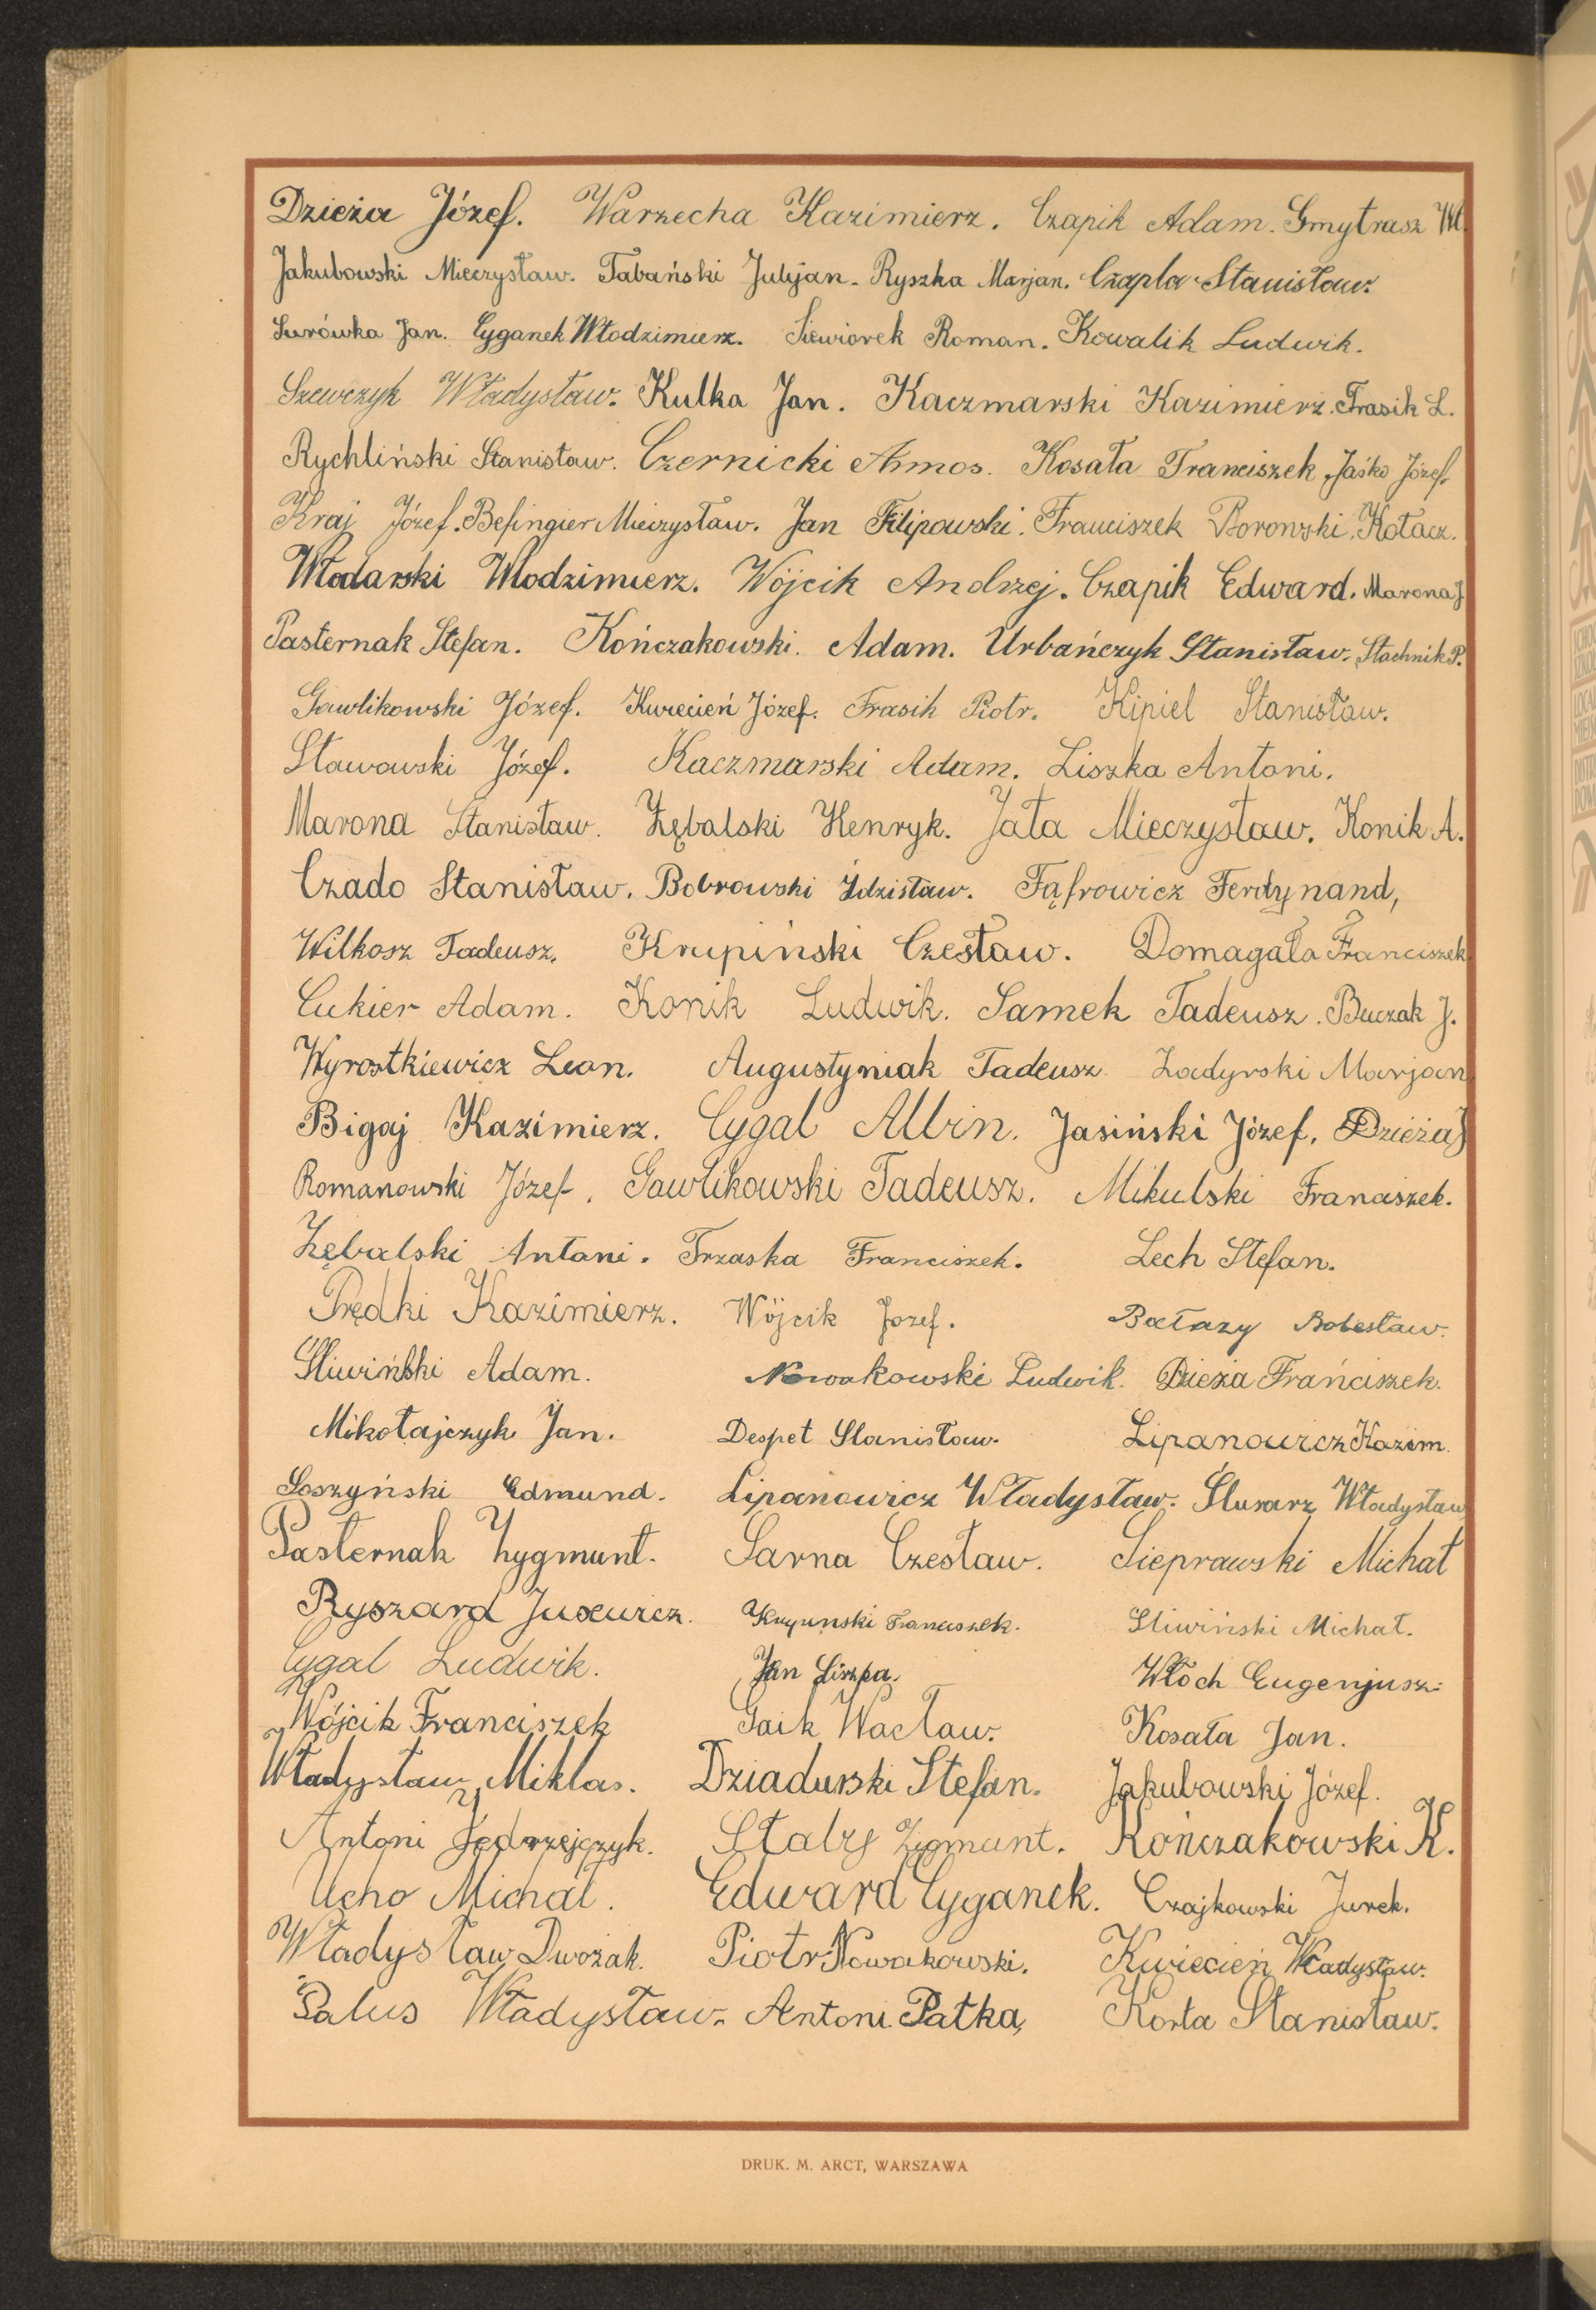 Dzieża Józef. Warzecha Kazimierz. Czapik Adam. Gmytrasz Wł.
Jakubowski Mieczysław. Tabański Julijan. Ryszka Marjan. Czapla Stanisław.
Surówka Jan. Cyganek Włodzimierz. Siewiorek Roman. Kowalik Ludwik.
Szewczyk Władysław. Kulka Jan. Kaczmarski Kazimierz. Frasik L.
Rychliński Stanisław. Czernicki Amos. Kosała Franciszek, Jaśko Józef.
Kraj Józef. Befingier Mieczysław. Jan Filipowski. Franciszek Boronski. Kołacz.
Włodarski Włodzimierz. Wójcik Andrzej. Czapik Edward. Marona J
Pasternak Stefan. Kończakowski. Adam. Urbańczyk Stanisław. Stachnik P.
Gawlikowski Józef. Kwiecień Józef. Frasik Piotr. Kipiel Stanisław.
Stawowski Józef. Kaczmarski Adam. Liszka Antoni.
Marona Stanisław. Zębalski Henryk. Jała Mieczysław. Konik A.
Czado Stanisław. Bobrowski Zdzisław. Fąfrowicz Ferdynand,
Wilkosz Tadeusz. Krupiński Czesław. Domagała Franciszek
Cukier Adam. Konik Ludwik. Samek Tadeusz. Buczak J.
Wyrostkiewicz Leon. Augustyniak Tadeusz Zadyrski Marjan
Bigaj Kazimierz. Cygal Albin. Jasiński Józef, Dzieża J
Romanowski Józef. Gawlikowski Tadeusz. Mikulski Franciszek.
Zębalski Antoni. Trzaska Franciszek. Lech Stefan.
Prędki Kazimierz. Wójcik Józef. Bałazy Bolesław.
Śliwiński Adam. Nowakowski Ludwik. Dzieża Frańciszek.
Mikołajczyk Jan. Despet Stanisław. Lipanowicz Kazim.
Soszyński Edmund. Lipanowicz Władysław. Ślusarz Władysław
Pasternak Zygmunt. Sarna Czesław. Sieprawski Michał
Ryszard Krupinski Franciszek. Sliwiński Michał.
Cygal Ludwik. Jan Liszka. Włoch Eugenjusz.
Wójcik Franciszek Gaik Wacław. Kosała Jan.
Władysław Miklas. Dziadurski Stefan. Jakubowski Józef.
Antoni Jędrzejczyk. Zigmunt. Kończakowski K.
Ucho Michał. Edward Cyganek. Czajkowski Jurek.
Władysław Dwożak. Piotr Nowakowski. Kwiecień Władysław.
Palus Władysław. Antoni Patka, Korta Stanisław.
DRUK. M. ARCT, WARSZAWA